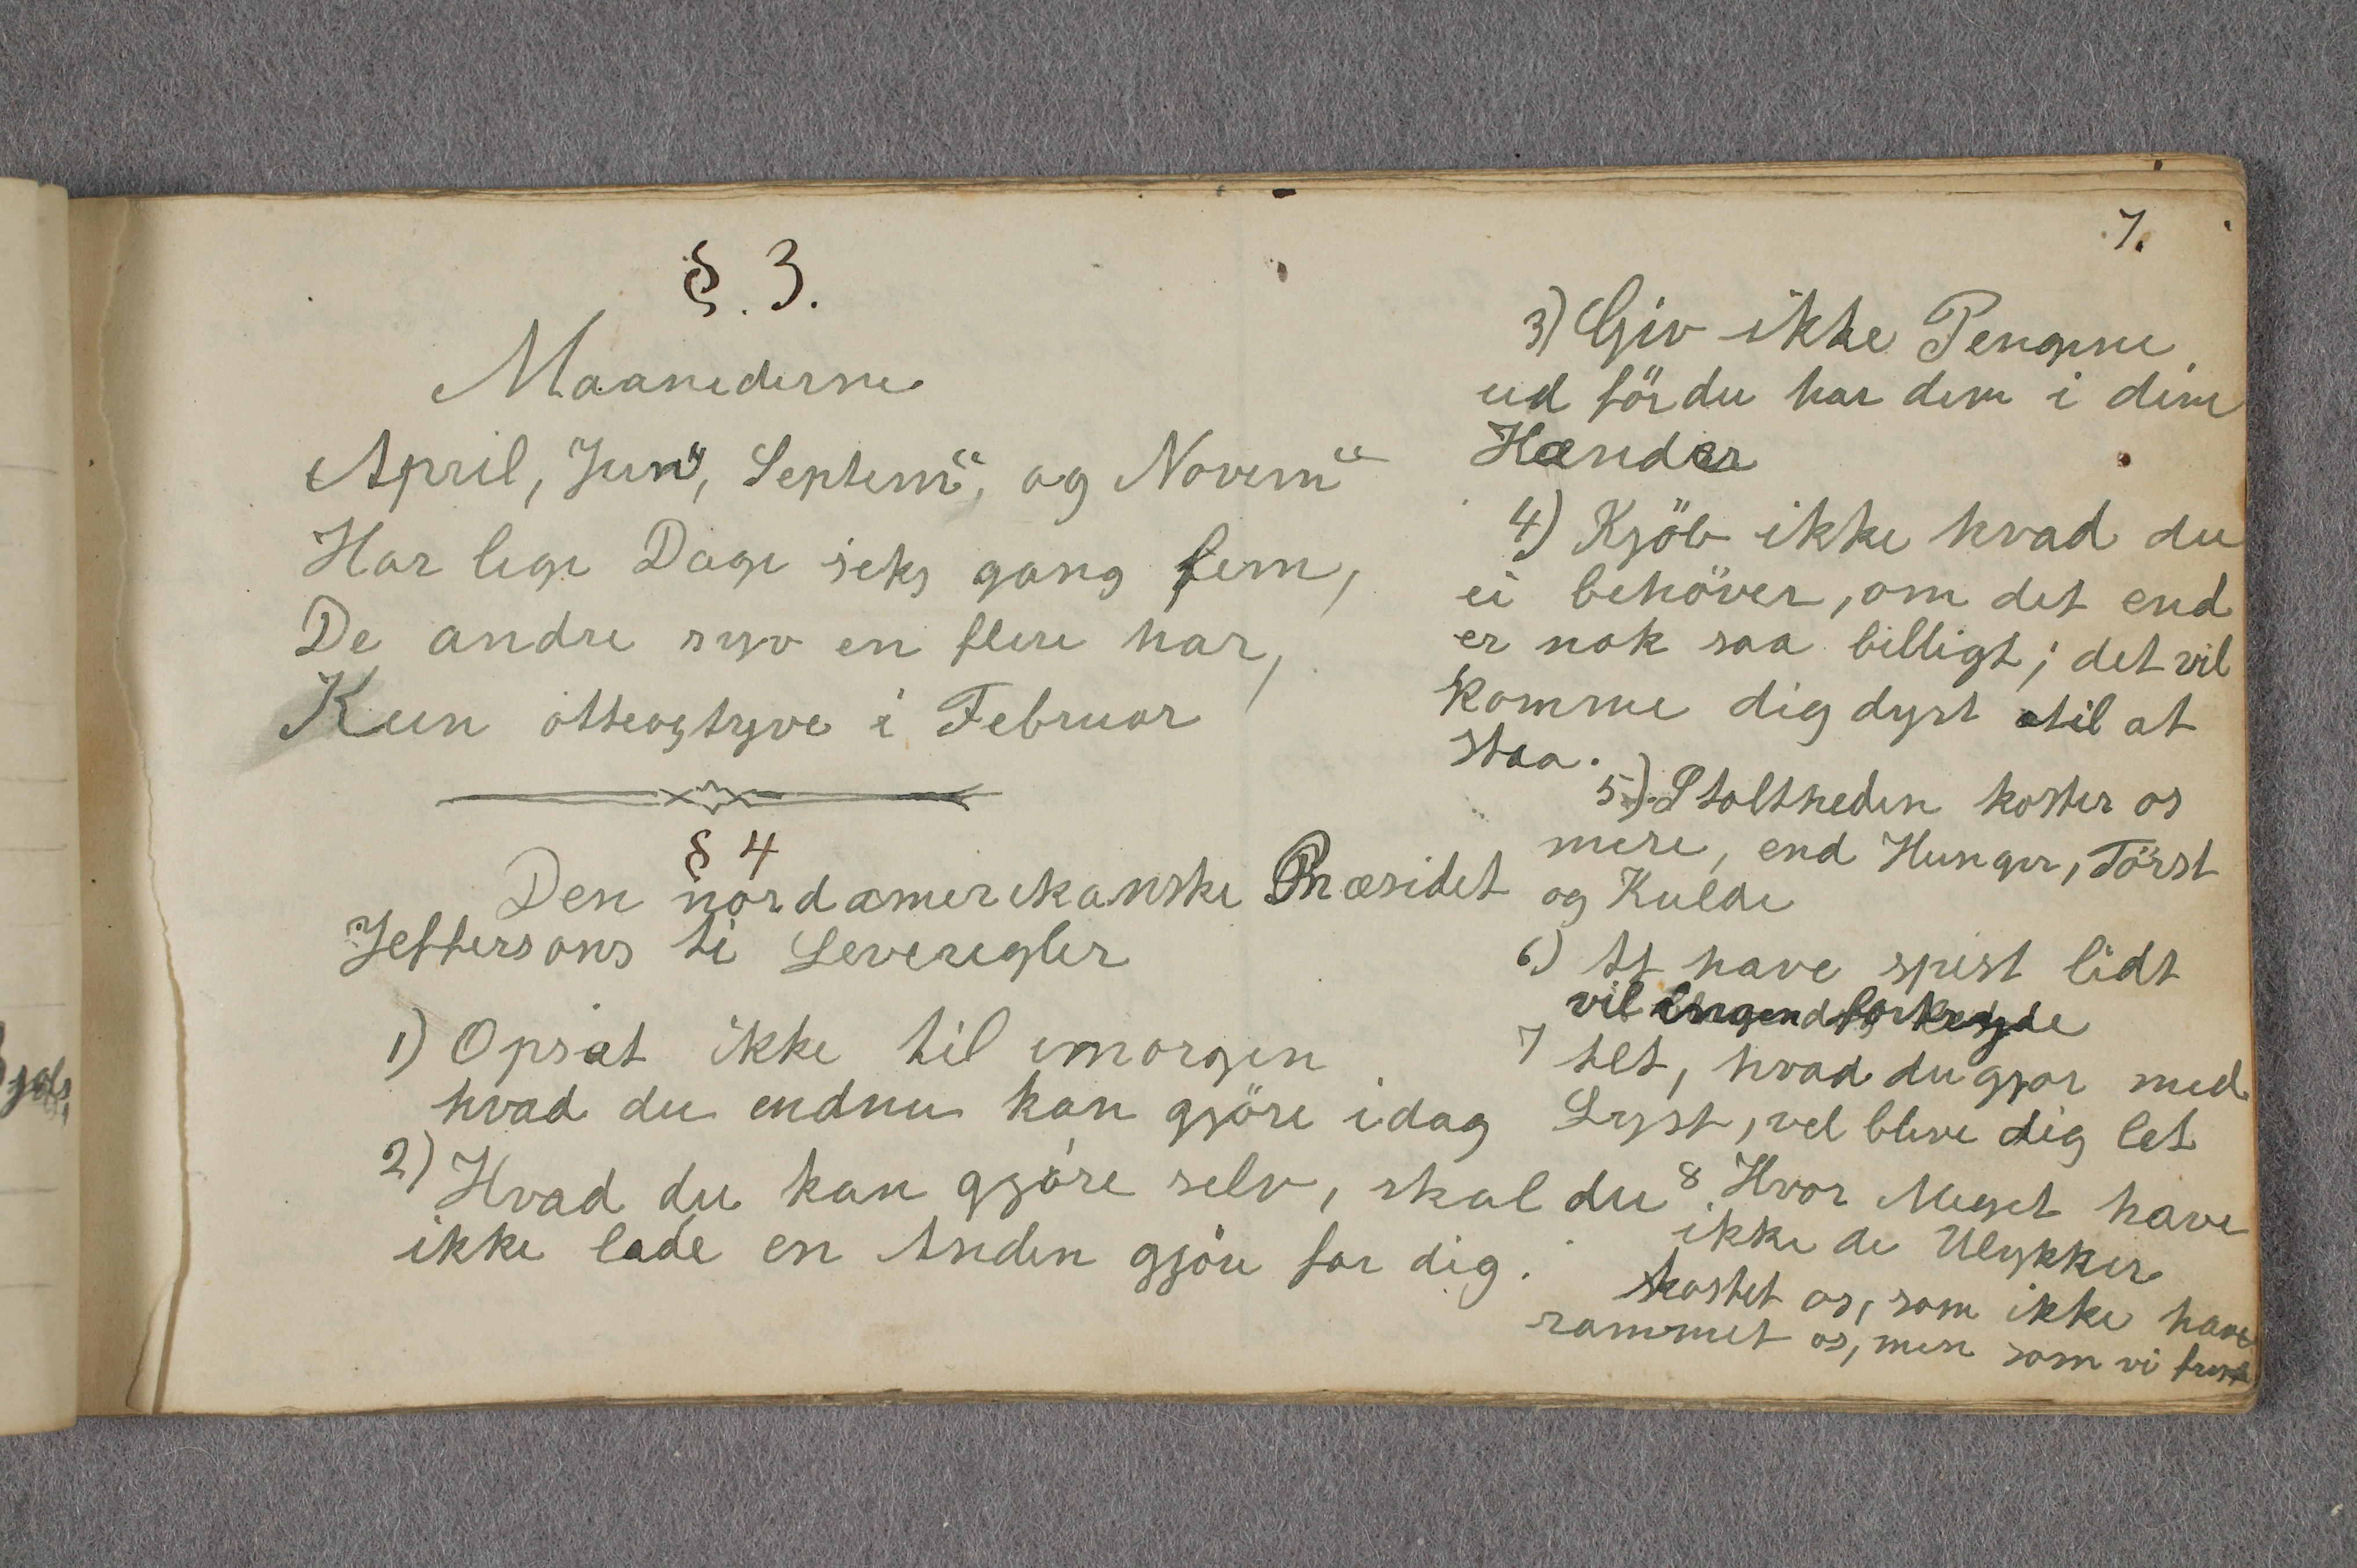 §. 3.
Maanederne
April, Jun", Septem", og Novem"
Har lige Dage seks gang fem,
De andre syv en flere har,
Kun otteogtyve i Februar
§ 4
Den nordamerikanske Præsidet
Jeffersons ti Leveregler
1) Opsæt ikke til imorgen
hvad du endnu kan gjöre idag
2) Hvad du kan gjöre selv, skal du
ikke lade en Anden gjöre for dig.
7.
3) Giv ikke Pengene
ud för du har dem i dine
Hænder
4) Kjöb ikke hvad du
ei behöver, om det end
er nok saa billigt; det vil
komme dig dyrt til at
staa.
5) Stoltheden koster os
mere, end Hunger, Törst
og Kulde
6) At have spist lidt
vil Ingen
7 Alt, hvad du gjor med
Lyst, vel blive dig let
8 Hvor Meget have
ikke de Ulykker
kostet os, som ikke have
rammet os, men som vi